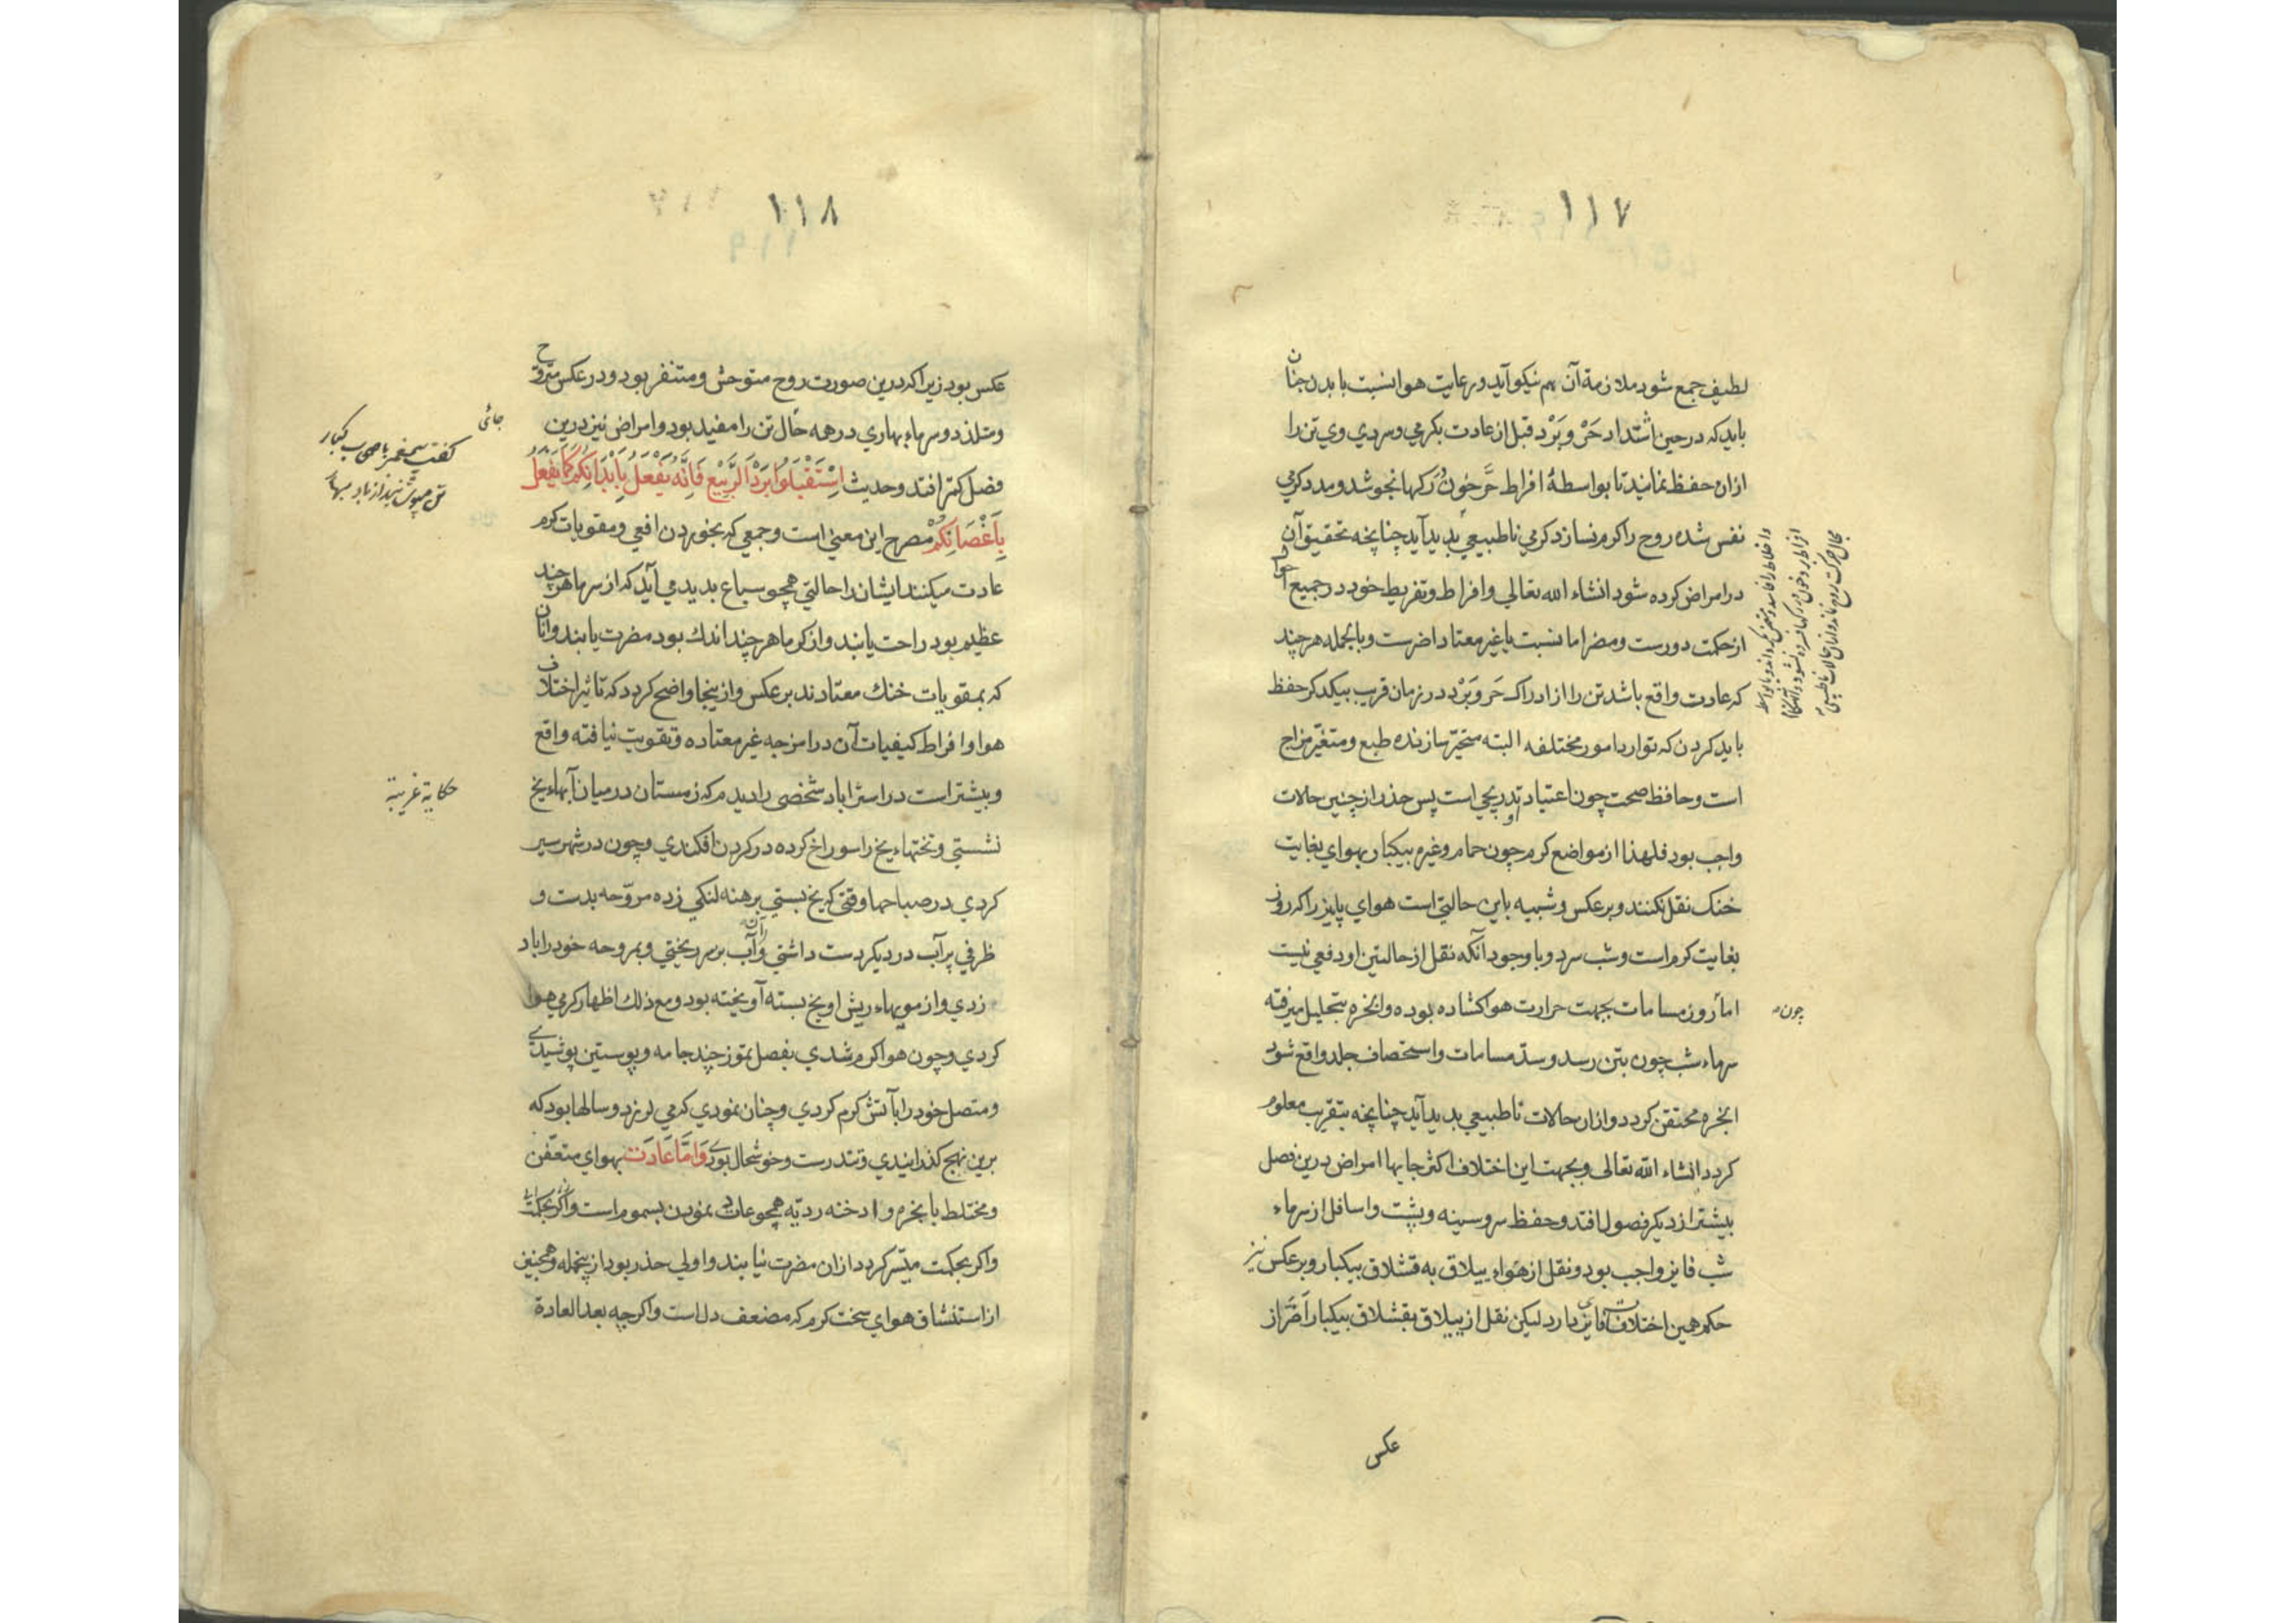 ١١٧
لطیف جمع شود ملازمهٔ آن هم نیکو آید و رعایت هوا بنسبت با بدن چنان
باید که در حین اشتداد حَرّ و بَرْد قبل از عادت بکرمی و سردی وی تن را
ازان حفظ نمایند تا بواسطهٔ افراط حَرّ خون در رکها نجوشد و مدد کرمی
نفس شده روح را کرم نسازد کرمی ناطبیعی بدید آید چنانچه تحقیق آن
در امراض کرده شود انشاء الله تعالی و افراط و تفریط خود در جمیع احوال
از حکمت دورست و مضر اما نسبت با غیر معتاد اضرست و بالجمله هر چند
که عادت واقع باشد تن را از ادراک حَر و بَرْد در زمان قریب بیکدکر حفظ
باید کردن که توارد امور مختلفه البته متحیّر سازنده طبع و متغیّر مزاج
است و حافظ صحت چون اعتیاد تدریجی است پس حذر از چنین حالات
واجب بود فلهذا از مواضع کرم چون حمام و غیره بیکبار بهوای بغایت
خنک نقل نکنند و برعکس و شبیه باین حالتی است هوای پاییز را که روز
بغایت کرم است و شب سرد و با وجود آنکه نقل از حالتین او دفعی نیست
اما روز مسامات بجهت حرارت هوا کشاده بوده و ابخره بتحلیل میرفته
سرماء شب چون بتن رسد و سدّ مسامات و استحصاف جلد واقع شود
ابخره محتقن کردد و ازان حالات ناطبیعی بدید آید چنانچه بتقریب معلوم
کردد انشاء الله تعالی و بجهت این اختلاف اکثر جایها امراض درین فصل
بیشتر از دیکر فصول افتد و حفظ سر و سینه و پشت و اسافل از سرماء
شب فایز واجب بود و نقل از هواء ییلاق به قشلاق بیکبار و برعکس نیز
حکم همین اختلاف فایز دارد لیکن نقل از ییلاق بقشلاق بیکبار اَضَرّ از
چون
عکس
١١٨
عکس بود زیرا که درین صورت روح متوحش و متنفر بود و در عکس متروح
و متلذذ و سرماء بهاری در همه حال تن را مفید بود و امراض نیز درین
فصل کمتر افتد و حدیث اِسْتَقْبِلُوا بَرْدَ الرَّبیْعِ فَاِنَّهُ یَفْعَلُ بِاَبْدَانِکُمْ کَمَا یَفْعَلُ
بِاَغْصَانِکُمْ مصرح این معنی است و جمعی که بخوردن افعی و مقویات کرم
عادت میکنند ایشان را حالتی همچو سباع بدید می آید که از سرما هر چند
عظیم بود راحت یابند و از کرما هر چند اندک بود مضرت یابند و آنان
که بمقویات خنک معتادند برعکس و ازینجا واضح کردد که تاثیر اختلاف
هوا و افراط کیفیات آن در امزجه غیر معتاده و تقویت نیافته واقع
و بیشتر است در استراباد شخصی را دیدم که زمستان در میان آبهاء یخ
نشستی و تختهاء یخ را سوراخ کرده در کردن افکندی و چون در شهر سیر
کردی در صباحها وقتی که یخ بستی برهنه لنکی زده مروّحه بدست و
ظرفی پر آب در دیکر دست داشتی و ازان آب بر سر ریختی و بمروحه خود را باد
زدی و از مویهاء ریش او یخ بسته آویخته بود و مع ذلک اظهار کرمی هوا
کردی و چون هوا کرم شدی بفصل تموز چند جامه و پوستین پوشیدی
و متصل خود را بآتش کرم کردی و چنان نمودی که می لرزد و سالها بود که
برین نهج کذرانیدی و تندرست و خوشحال بودی وَاَمَّا عَادَت بهوای متعفّن
و مختلط بابخره و ادخنه ردیّه همچو عادت نمودن بسموم است
و اکر بحکمت میسّر کردد ازان مضرت نیابند و اولی حذر بود ازینجمله و همچنین
از استنشاق هوای سخت کرم که مضعف دل است و اکر چه بعد العادة
جائی
کفت پیغمبر باصحاب کبار
تن مپوشانید از باد بهار
حکایة غریبة